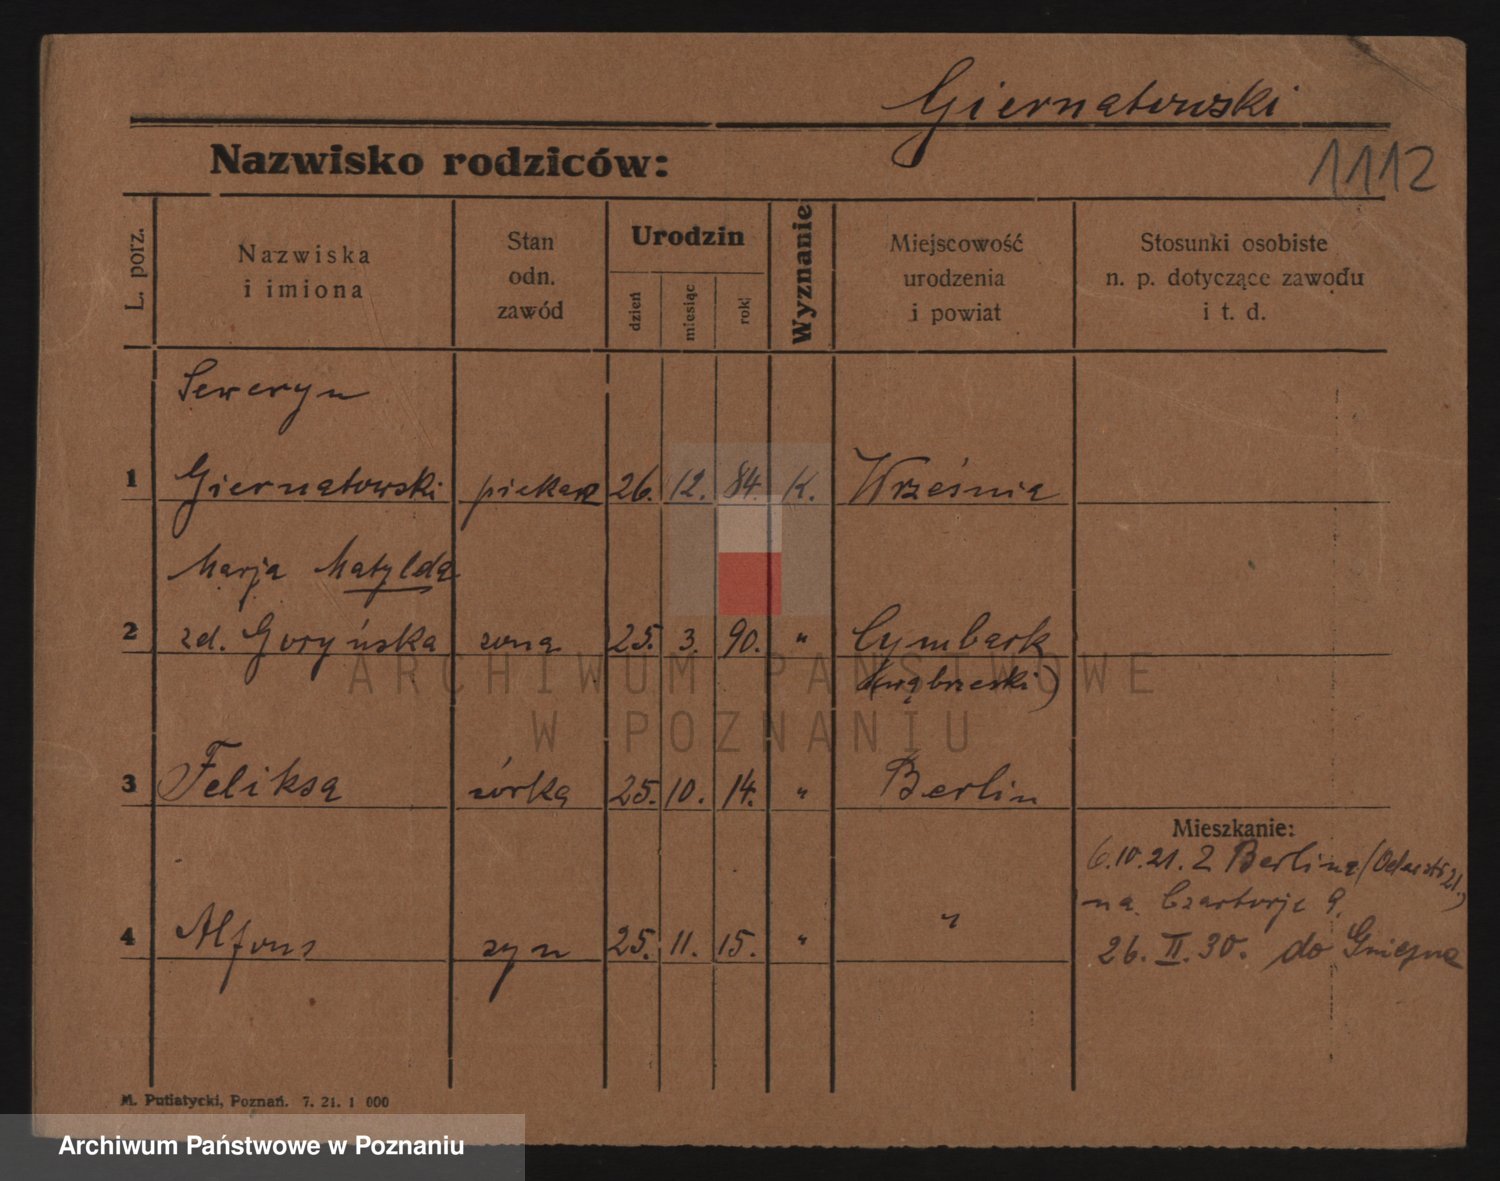 Giernatowski
Nazwisko rodziców:
1112
L. porz.
Nazwiska
i imiona
Stan
odn.
zawód
Urodzin
dzień
miesiąc
rok
Wyznanie
Miejscowość
urodzenia
i powiat
Stosunki osobiste
n. p. dotyczące zawodu
i t. d.
Seweryn
1 Giernatowski piekarz 26. 12. 84. K. Września
Marja Matylda
2 zd. Goryńska żona 25. 3. 90. " Cymbark
(Wąbrzeski)
3 Feliksa córka 25. 10. 14. " Berlin
Mieszkanie:
6.10.21. Z Berlina
na Czartorje 9.
4 Alfons syn 25. 11. 15. " "
26. II. 30. do Gniezna
ARCHIWUM PAŃSTWOWE
W POZNANIU
M. Putiatycki, Poznań. 7. 21. 1 000
Archiwum Państwowe w Poznaniu